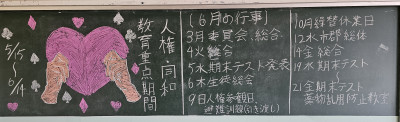 5/15
〜
6/14
人権・同和
教育重点期間
(6月の行事)
3月 委員会、総合
4火 総合
5水 期末テスト発表
6木 生徒総会
9日 人権参観日
避難訓練(引き渡し)
10月 繰替休業日
12水 市郡総体
14金 総合
19水 期末テスト
〜
21金 期末テスト
薬物乱用防止教室